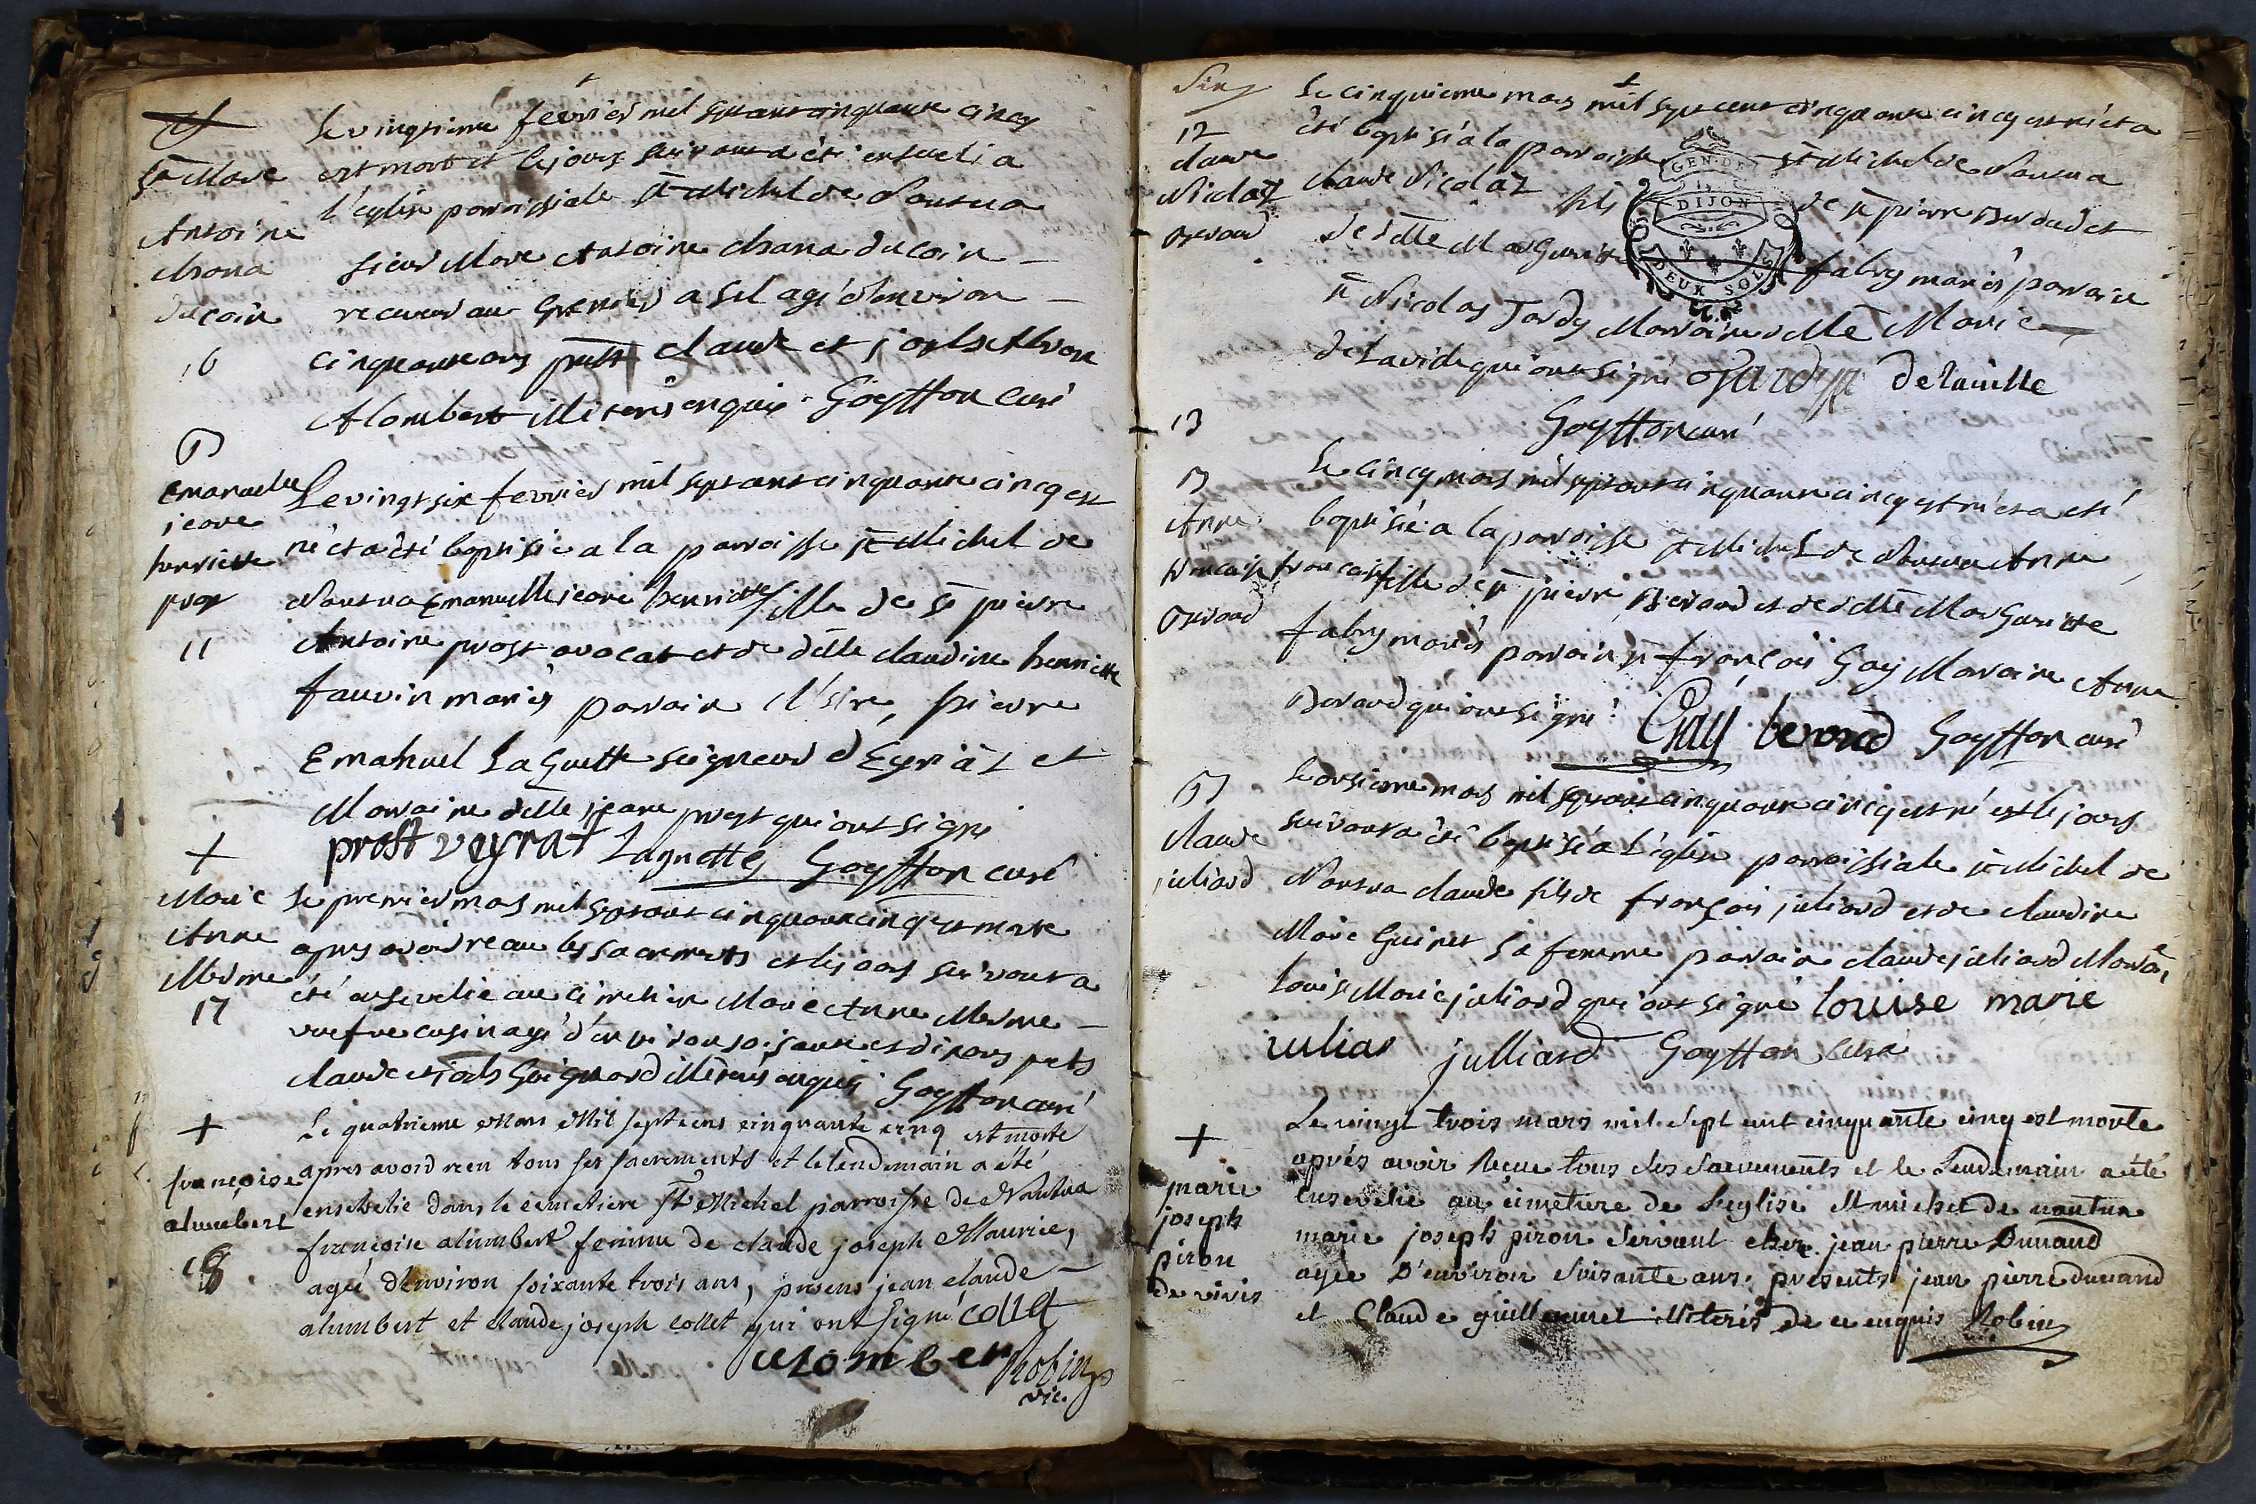 Le vingtieme fevrier mil sept cent cinquante cinq
est mort et le jour suivant a été enseveli a
l'eglise parroissiale st Michel de Nantua
sieur Marc Antoine Chana Ducoin
receveur au Grenier a sel agé d'environ
cinquante ans pnts claude et jos
Alombert illiterés enquis Goyffon curé
sr Marc
Antoine
chana
du coin
16
Le vingt six fevrier mil sept cent cinquante cinq est
né et a été baptisée a la parroisse st Michel de
Nantua Emanuelle jeane henriette fille de sr pierre
Antoine prost avocat et de delle claudine henriette
fauvin mariés parrain Mre pierre
Emanuel Laguette seigneur d'Eyriat et
Marraine delle jeane prost qui ont signé
prost veyrat Laguette Goyffon curé
B
Emanuelle
jeane
henriette
prost
11
Le premier mars mil sept cent cinquante cinq est morte
apres avoir reçu les sacremens et le jour suivant a
été ensevelie au cimetiere Marie Anne Merme
agé d'environ soisante et dix ans pnts
claude et jos Guignard illiterés enquis Goyffon curé
+
Marie
Anne
Merme
17
Le quatrieme Mars Mil sept cens cinquante cinq est morte
apres avoir recu tous ses sacrements et le lendemain a été
ensevelie dans le cemetiere st Michel parroisse de Nantua
françoise alumbert femme de claude joseph Maurice,
agée d'environ soixante trois ans, presens jean claude
alumbert et claude joseph collet qui ont signé collet
alomber Robin
vic.
+
françoise
alumbert
18.
12
claude
Nicolaz
Berard
Le cinquieme mars mil sept cent cinquante cinq est né et a
été baptisé a la parroisse st Michel de Nantua
claude Nicolaz fils de sr pierre Berard et
de delle Margueritte fabry mariés parrain
sr Nicolas Tardy Marraine delle Marie
delaville qui ont signé Tardy delaville
Goyffon curé
GEN. DE
DIJON
DEUX SOLS
13
B
Anne
francoise
Berard
Le cinq mars mil sept cent cinquante cinq est né et a été
baptisée a la parroisse st Michel de Nantua Anne
francoise fille de sr pierre Berard et de delle Margueritte
fabry mariés parrain sr françois Gay Marraine Anne
Berard qui ont signé Gay berard Goyffon curé
B
claude
juliard
Le onsieme mars mil sept cent cinquante cinq est né et le jour
suivant a été baptisé a l'eglise parroissiale st Michel de
Nantua claude fils de françois juliard et de claudine
Marie Guinet sa femme parrain claude juliard Marraine
Louise Marie juliard qui ont signé louise marie
iuliar julliard Goyffon curé
+
marie
joseph
piron
de vivis
Le vingt trois mars mil sept cent cinquante cinq est morte
aprés avoir Recue tous ses sacrements et le Lendemain a été
ensevelie au cimetiere de L'eglise st michel de nantua
marie joseph piron servant chez jean pierre Dunand
agée D'environ soisante ans. presents jean pierre dunand
et Claude guillemet illiterés de ce enquis Robin
vic